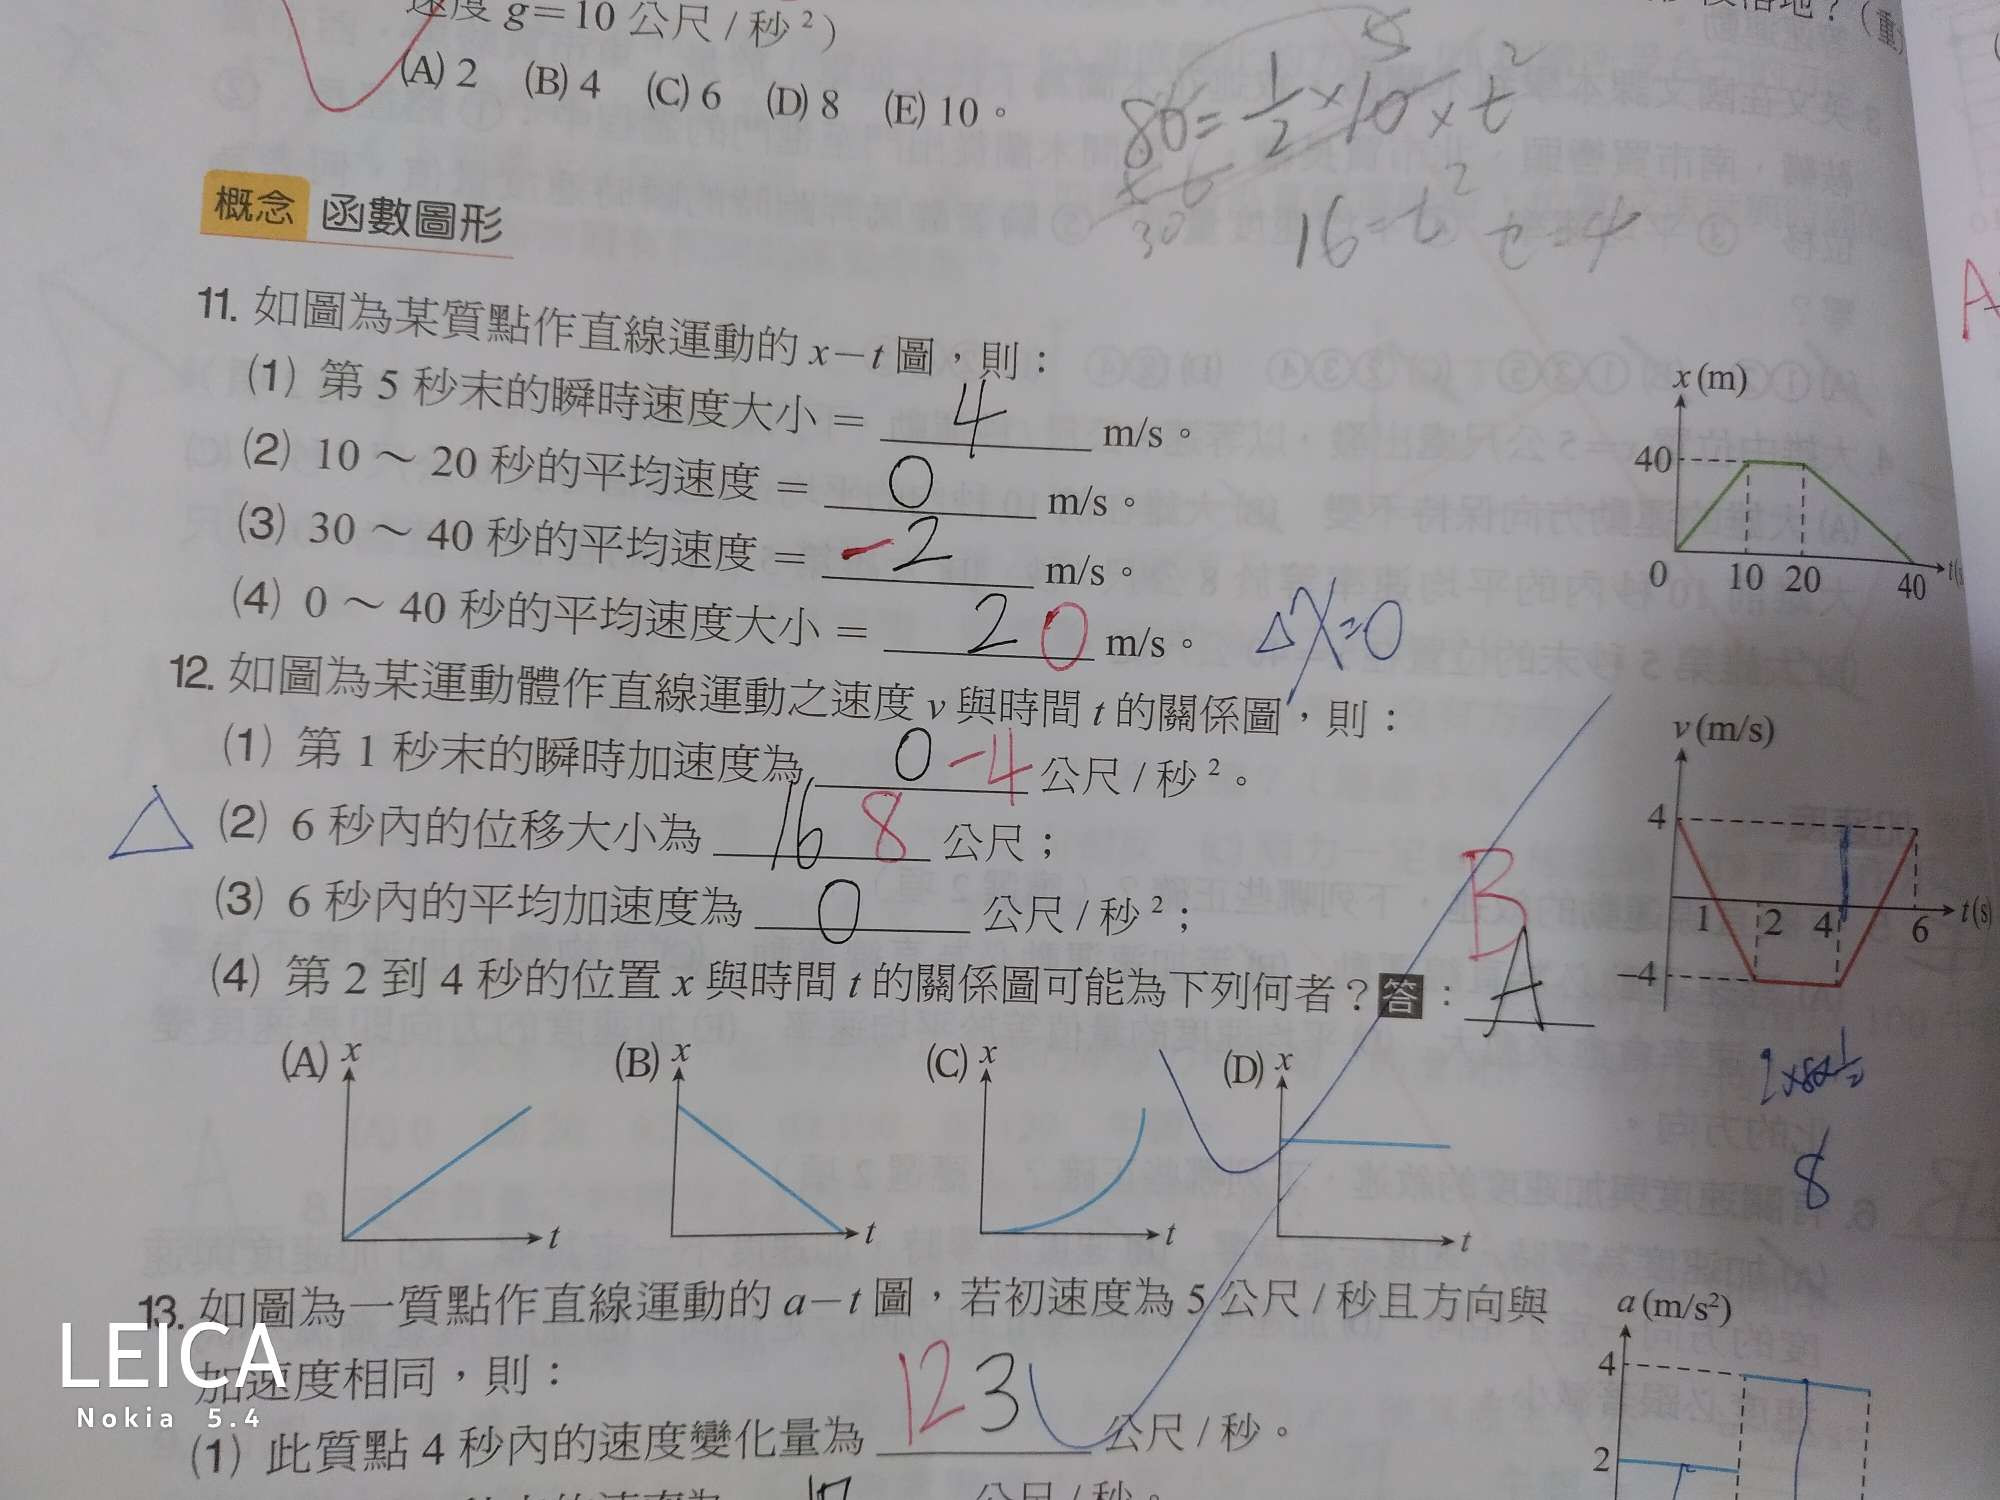 速度 g=10 公尺/秒²)
(A) 2 (B) 4 (C) 6 (D) 8 (E) 10。
80=1/2×10×t²
30
16=t² t=4
概念 函數圖形
11. 如圖為某質點作直線運動的 x-t 圖，則：
(1) 第 5 秒末的瞬時速度大小 = 4 m/s。
(2) 10～20 秒的平均速度 = 0 m/s。
(3) 30～40 秒的平均速度 = -2 m/s。
(4) 0～40 秒的平均速度大小 = 2 0 m/s。 ΔX=0
x(m)
40
0 10 20 40
12. 如圖為某運動體作直線運動之速度 v 與時間 t 的關係圖，則：
(1) 第 1 秒末的瞬時加速度為 0 -4 公尺/秒²。
(2) 6 秒內的位移大小為 16 8 公尺；
(3) 6 秒內的平均加速度為 0 公尺/秒²；
(4) 第 2 到 4 秒的位置 x 與時間 t 的關係圖可能為下列何者？答：B A
v(m/s)
4
1 2 4 6 t(s)
-4
8
(A) x t (B) x t (C) x t (D) x t
13. 如圖為一質點作直線運動的 a-t 圖，若初速度為 5 公尺/秒且方向與
加速度相同，則：
(1) 此質點 4 秒內的速度變化量為 12 3 公尺/秒。
公尺/秒。
a(m/s²)
4
2
LEICA
Nokia 5.4